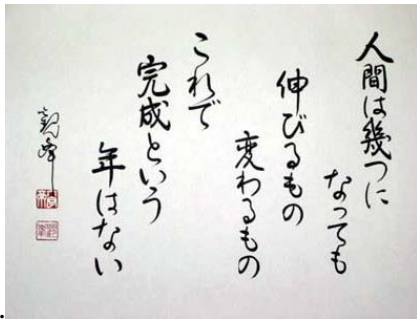 人間は幾つに
なっても
伸びるもの
変わるもの
これで
完成という
年はない
觀峰